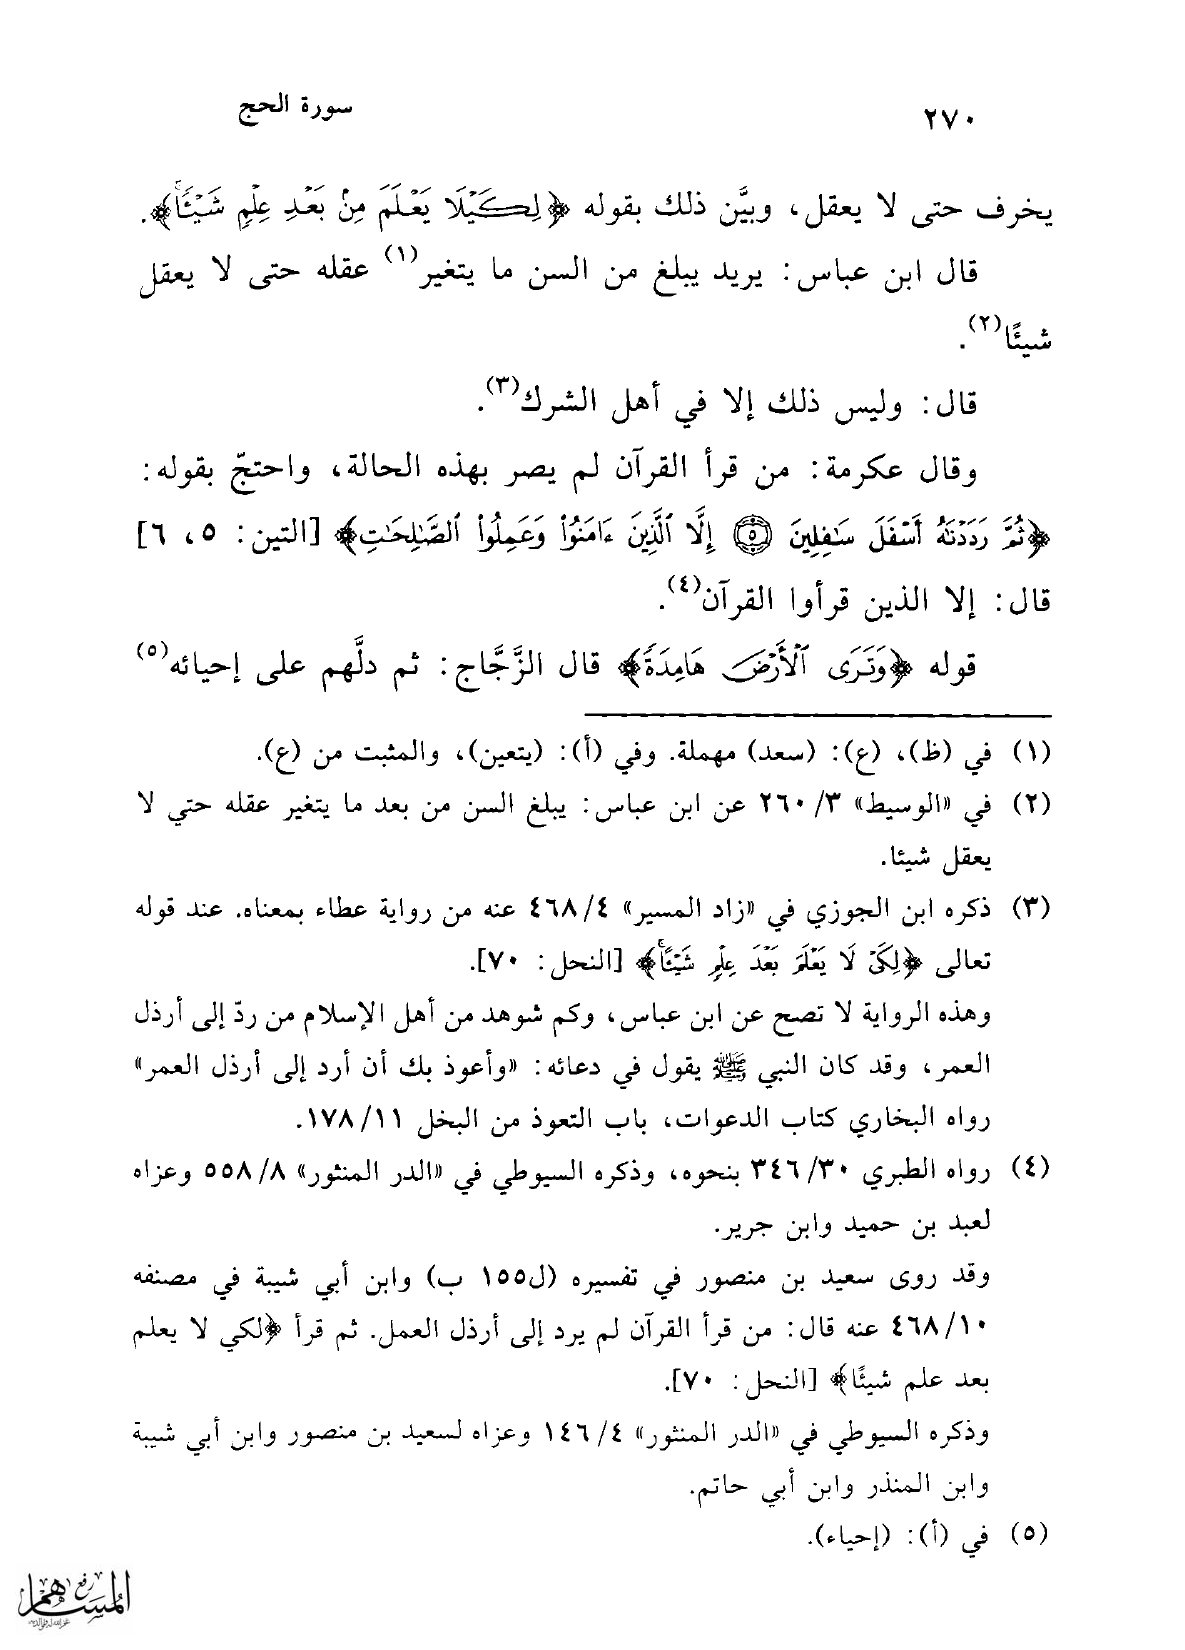 ٢٧٠
سورة الحج
يخرف حتى لا يعقل، وبيَّن ذلك بقوله ﴿لِكَيْلَا يَعْلَمَ مِنْ بَعْدِ عِلْمٍ شَيْئًا﴾.
قال ابن عباس: يريد يبلغ من السن ما يتغير(١) عقله حتى لا يعقل
شيئًا(٢).
قال: وليس ذلك إلا في أهل الشرك(٣).
وقال عكرمة: من قرأ القرآن لم يصر بهذه الحالة، واحتجّ بقوله:
﴿ثُمَّ رَدَدْنَاهُ أَسْفَلَ سَافِلِينَ ۝٥ إِلَّا الَّذِينَ ءَامَنُوا وَعَمِلُوا الصَّالِحَاتِ﴾ [التين: ٥، ٦]
قال: إلا الذين قرأوا القرآن(٤).
قوله ﴿وَتَرَى الْأَرْضَ هَامِدَةً﴾ قال الزَّجَّاج: ثم دلَّهم على إحيائه(٥)
(١) في (ظ)، (ع): (سعد) مهملة. وفي (أ): (يتعين)، والمثبت من (ع).
(٢) في «الوسيط» ٣/ ٢٦٠ عن ابن عباس: يبلغ السن من بعد ما يتغير عقله حتي لا
يعقل شيئا.
(٣) ذكره ابن الجوزي في «زاد المسير» ٤/ ٤٦٨ عنه من رواية عطاء بمعناه. عند قوله
تعالى ﴿لِكَيْ لَا يَعْلَمَ بَعْدَ عِلْمٍ شَيْئًا﴾ [النحل: ٧٠].
وهذه الرواية لا تصح عن ابن عباس، وكم شوهد من أهل الإسلام من ردّ إلى أرذل
العمر، وقد كان النبي ﷺ يقول في دعائه: «وأعوذ بك أن أرد إلى أرذل العمر»
رواه البخاري كتاب الدعوات، باب التعوذ من البخل ١١/ ١٧٨.
(٤) رواه الطبري ٣٠/ ٣٤٦ بنحوه، وذكره السيوطي في «الدر المنثور» ٨/ ٥٥٨ وعزاه
لعبد بن حميد وابن جرير.
وقد روى سعيد بن منصور في تفسيره (ل١٥٥ ب) وابن أبي شيبة في مصنفه
١٠/ ٤٦٨ عنه قال: من قرأ القرآن لم يرد إلى أرذل العمل. ثم قرأ ﴿لكي لا يعلم
بعد علم شيئًا﴾ [النحل: ٧٠].
وذكره السيوطي في «الدر المنثور» ٤/ ١٤٦ وعزاه لسعيد بن منصور وابن أبي شيبة
وابن المنذر وابن أبي حاتم.
(٥) في (أ): (إحياء).